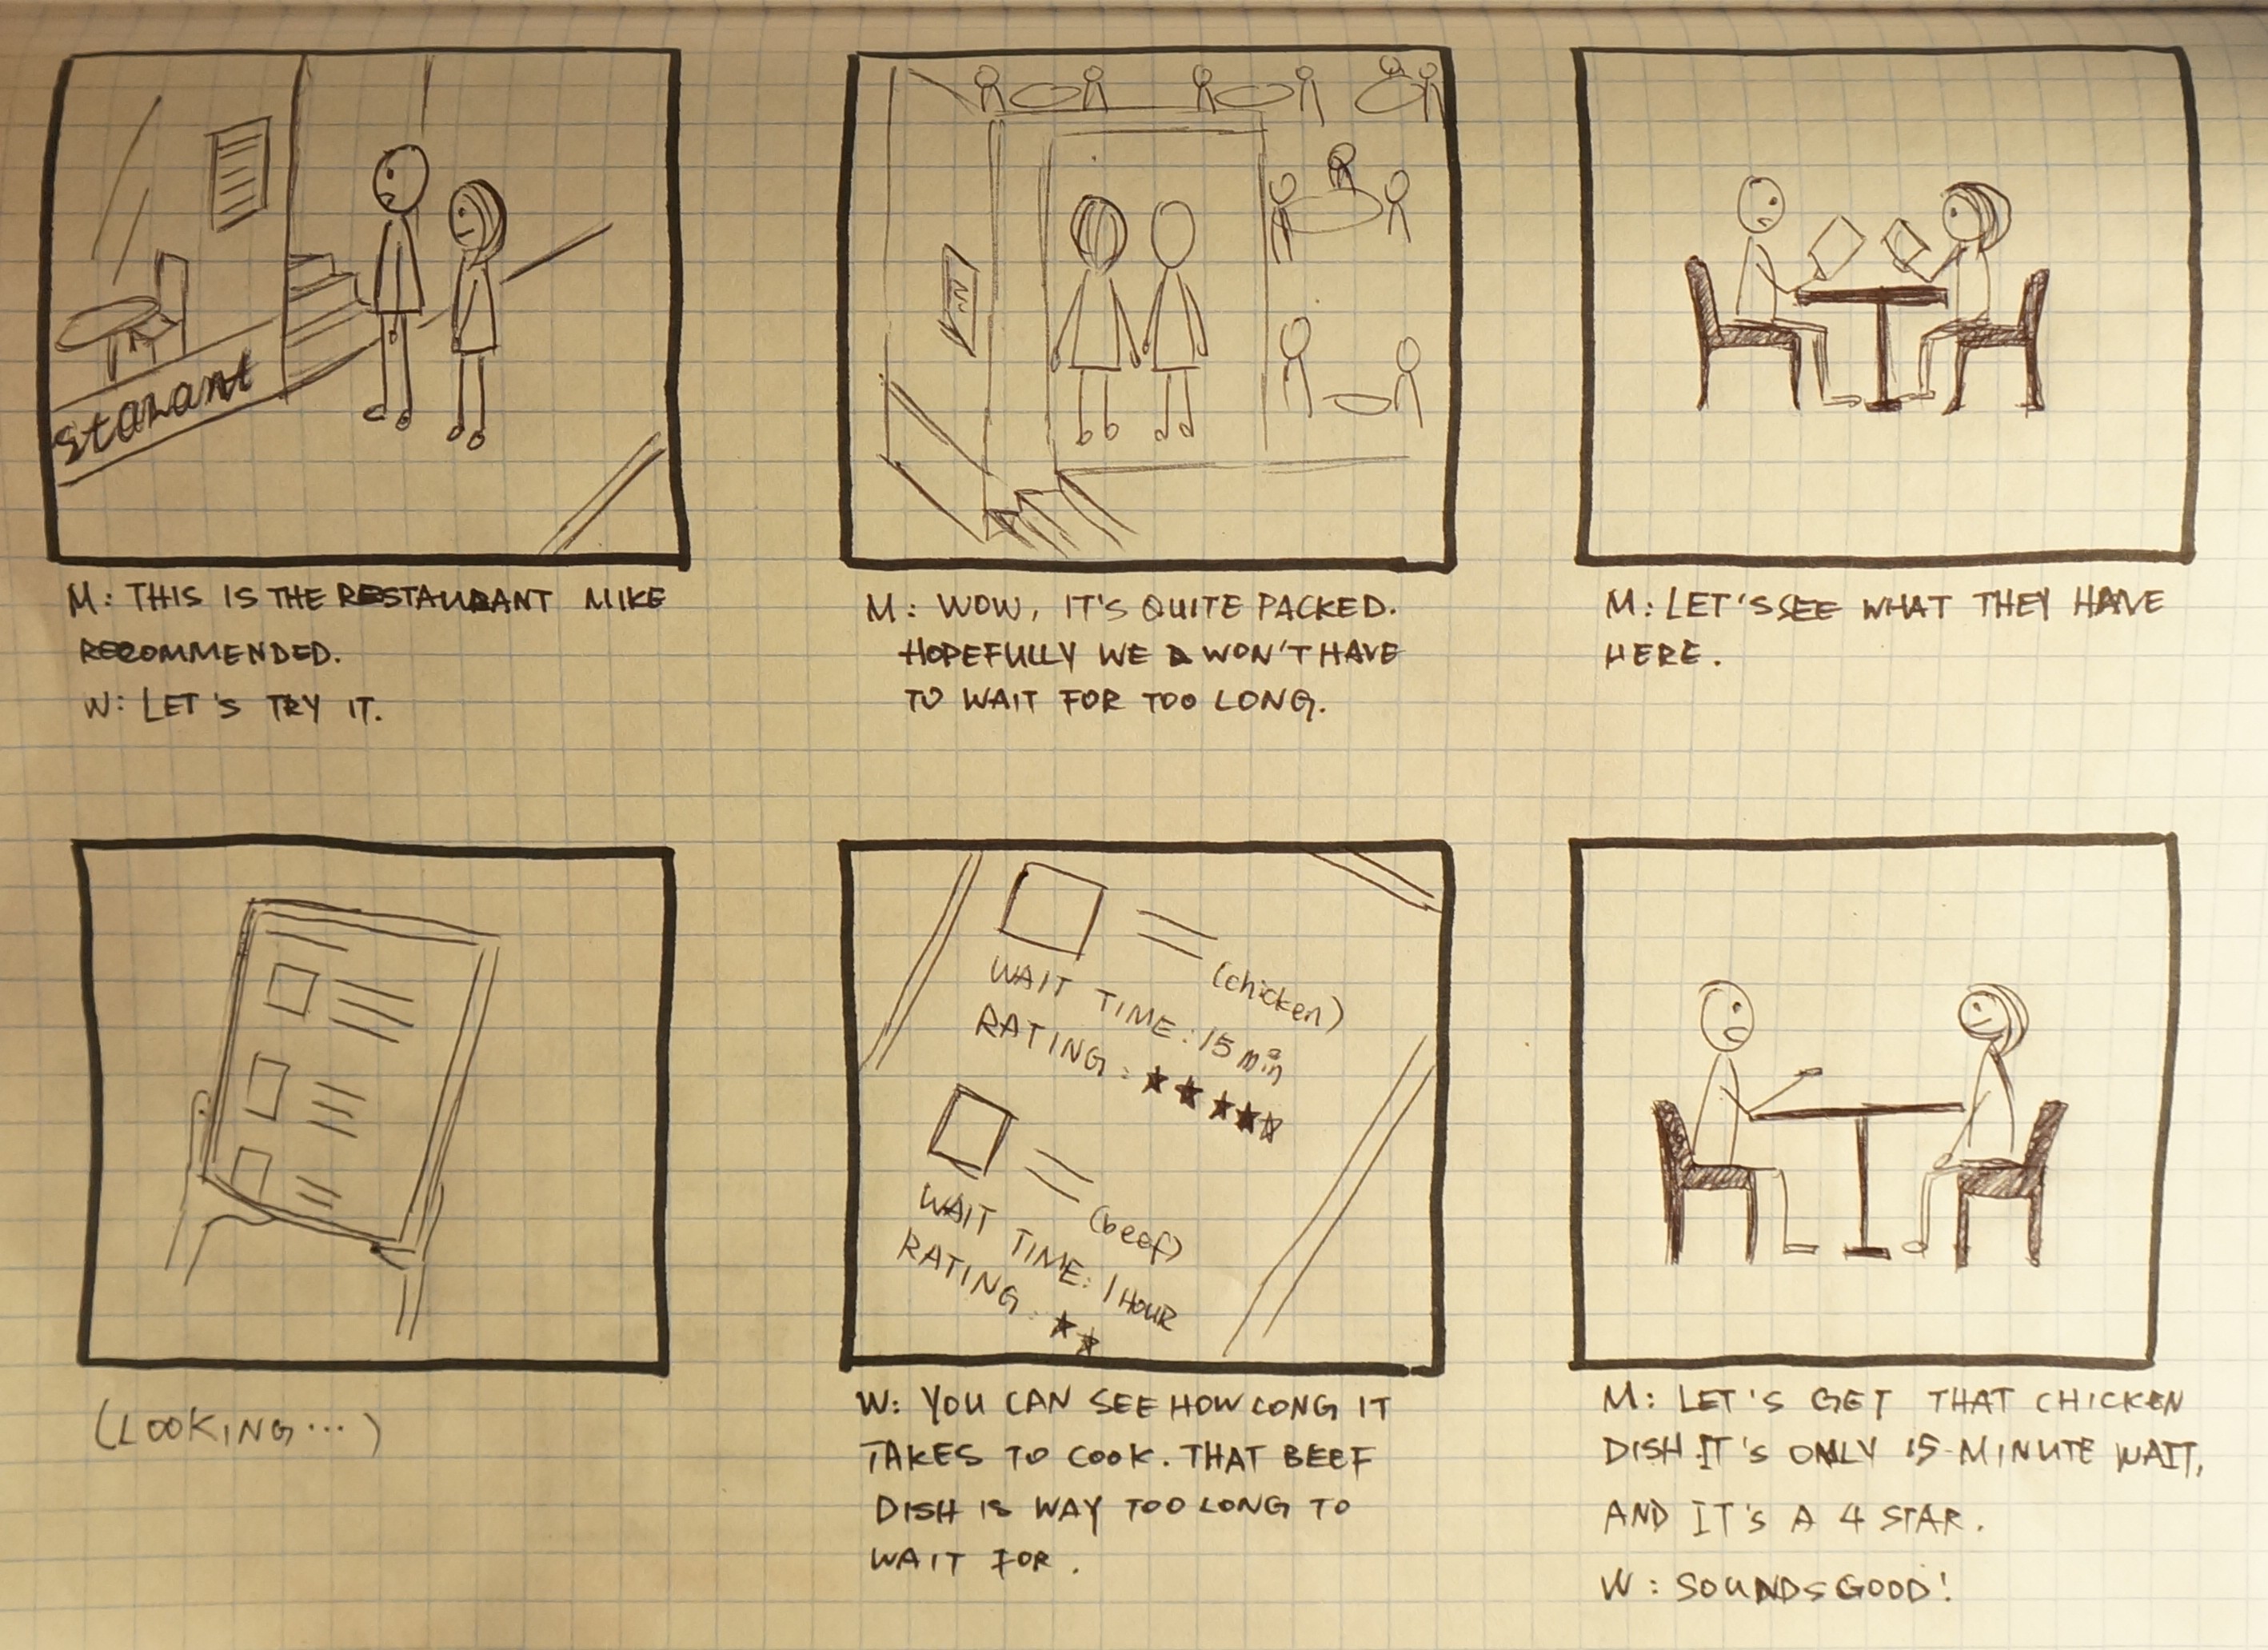 starant
M: THIS IS THE RESTAURANT MIKE
RECOMMENDED.
W: LET'S TRY IT.
M: WOW, IT'S QUITE PACKED.
HOPEFULLY WE WON'T HAVE
TO WAIT FOR TOO LONG.
M: LET'S SEE WHAT THEY HAVE
HERE.
(LOOKING...)
(chicken)
WAIT TIME: 15 min
RATING: ★★★★☆
(beef)
WAIT TIME: 1 HOUR
RATING: ★★
W: YOU CAN SEE HOW LONG IT
TAKES TO COOK. THAT BEEF
DISH IS WAY TOO LONG TO
WAIT FOR.
M: LET'S GET THAT CHICKEN
DISH IT'S ONLY 15-MINUTE WAIT,
AND IT'S A 4 STAR.
W: SOUNDS GOOD!